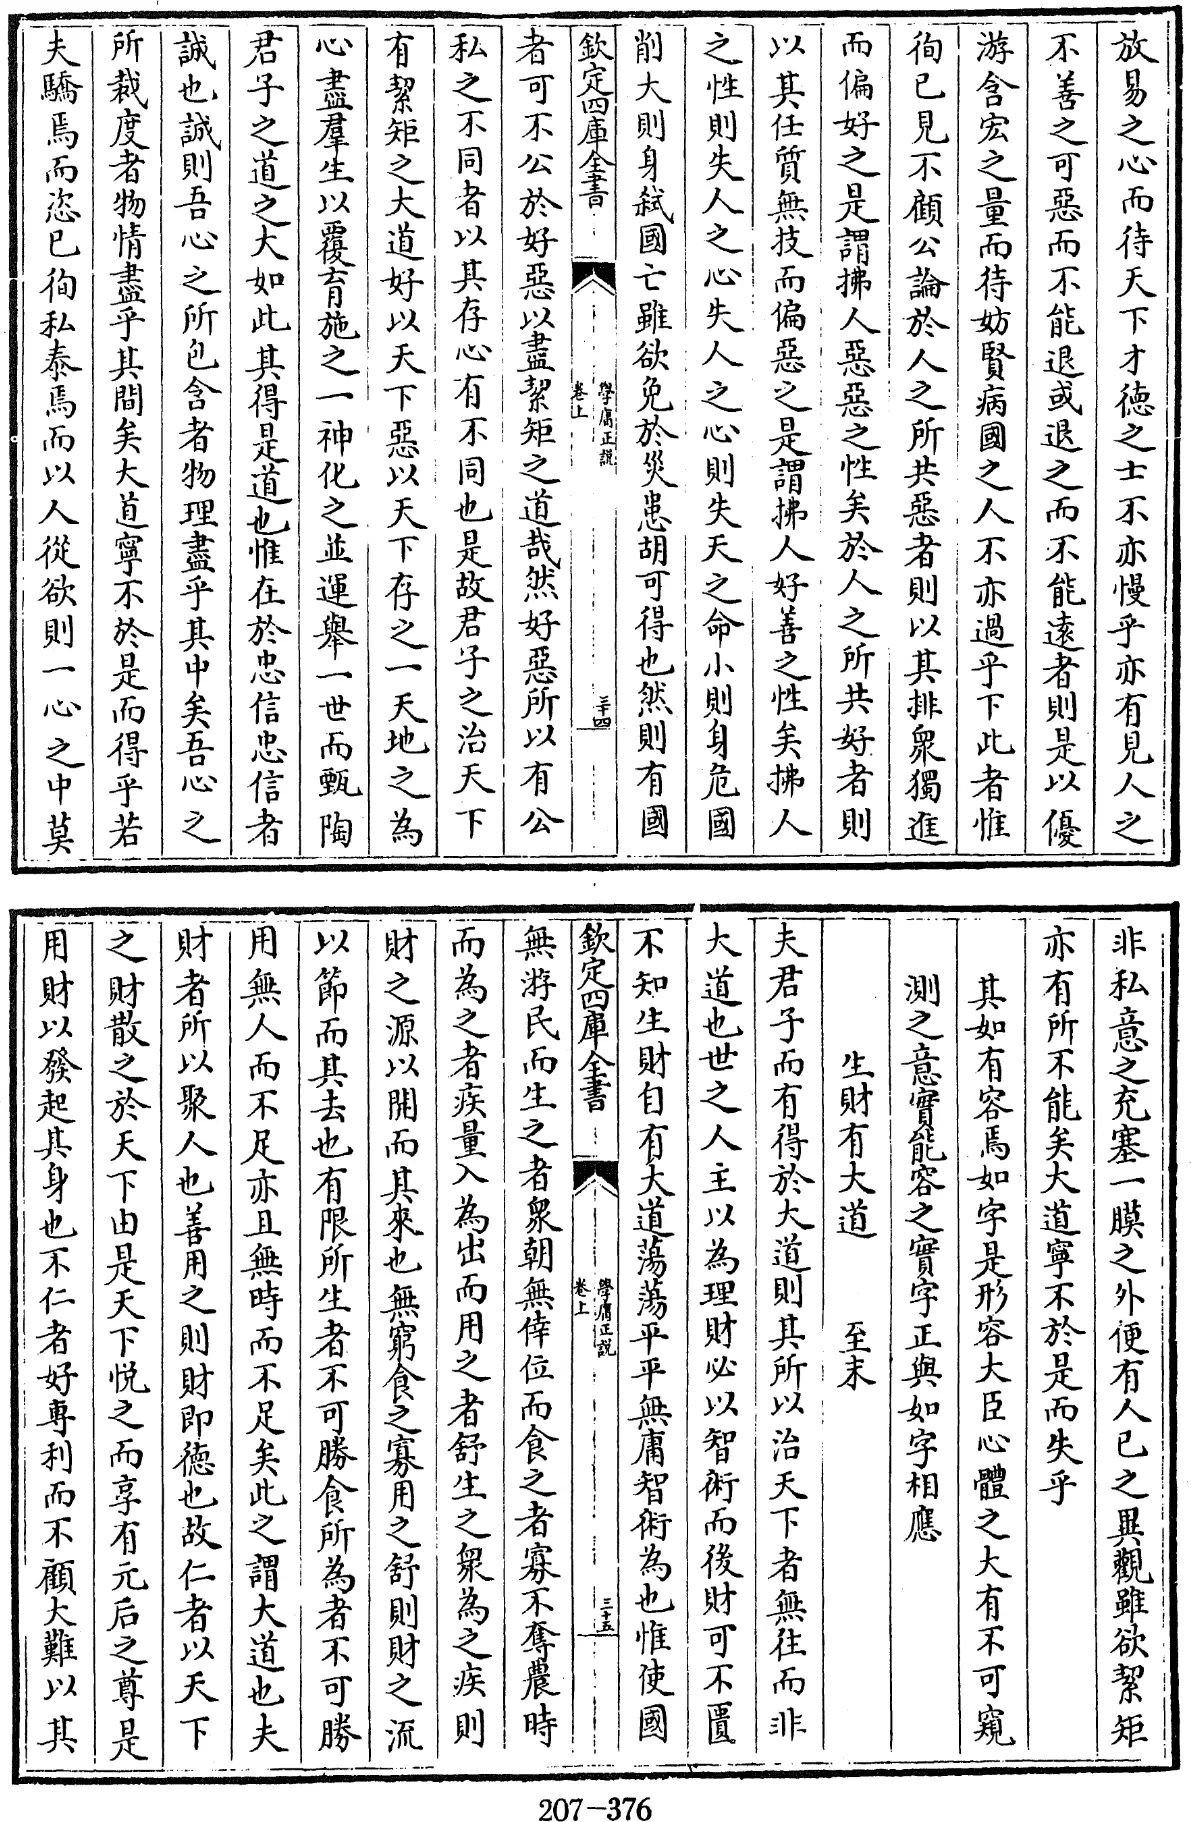 放易之心而待天下才德之士不亦慢乎亦有見人之
不善之可惡而不能退或退之而不能遠者則是以優
游含宏之量而待妨賢病國之人不亦過乎下此者惟
徇已見不顧公論於人之所共惡者則以其排衆獨進
而偏好之是謂拂人惡惡之性矣於人之所共好者則
以其任質無技而偏惡之是謂拂人好善之性矣拂人
之性則失人之心失人之心則失天之命小則身危國
削大則身弑國亡雖欲免於災患胡可得也然則有國
欽定四庫全書
學庸正說
卷上
三十四
者可不公於好惡以盡絜矩之道哉然好惡所以有公
私之不同者以其存心有不同也是故君子之治天下
有絜矩之大道好以天下惡以天下存之一天地之為
心盡羣生以覆育施之一神化之並運舉一世而甄陶
君子之道之大如此其得是道也惟在於忠信忠信者
誠也誠則吾心之所包含者物理盡乎其中矣吾心之
所裁度者物情盡乎其間矣大道寧不於是而得乎若
夫驕焉而恣已徇私泰焉而以人從欲則一心之中莫
非私意之充塞一膜之外便有人已之異觀雖欲絜矩
亦有所不能矣大道寧不於是而失乎
其如有容焉如字是形容大臣心體之大有不可窺
測之意實能容之實字正與如字相應
生財有大道 至末
夫君子而有得於大道則其所以治天下者無往而非
大道也世之人主以為理財必以智術而後財可不匱
不知生財自有大道蕩蕩平平無庸智術為也惟使國
欽定四庫全書
學庸正說
卷上
三十五
無游民而生之者衆朝無倖位而食之者寡不奪農時
而為之者疾量入為出而用之者舒生之衆為之疾則
財之源以開而其來也無窮食之寡用之舒則財之流
以節而其去也有限所生者不可勝食所為者不可勝
用無人而不足亦且無時而不足矣此之謂大道也夫
財者所以聚人也善用之則財即德也故仁者以天下
之財散之於天下由是天下悅之而享有元后之尊是
用財以發起其身也不仁者好專利而不顧大難以其
207-376